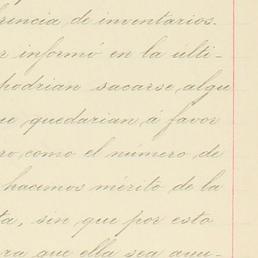 rencia de inventarios.
r informó en la últi-
podrian sacarse algu
ue quedarian á favor
ro como el número de
hacemos mérito de la
ta, sin que por esto
ra que ella sea anu-